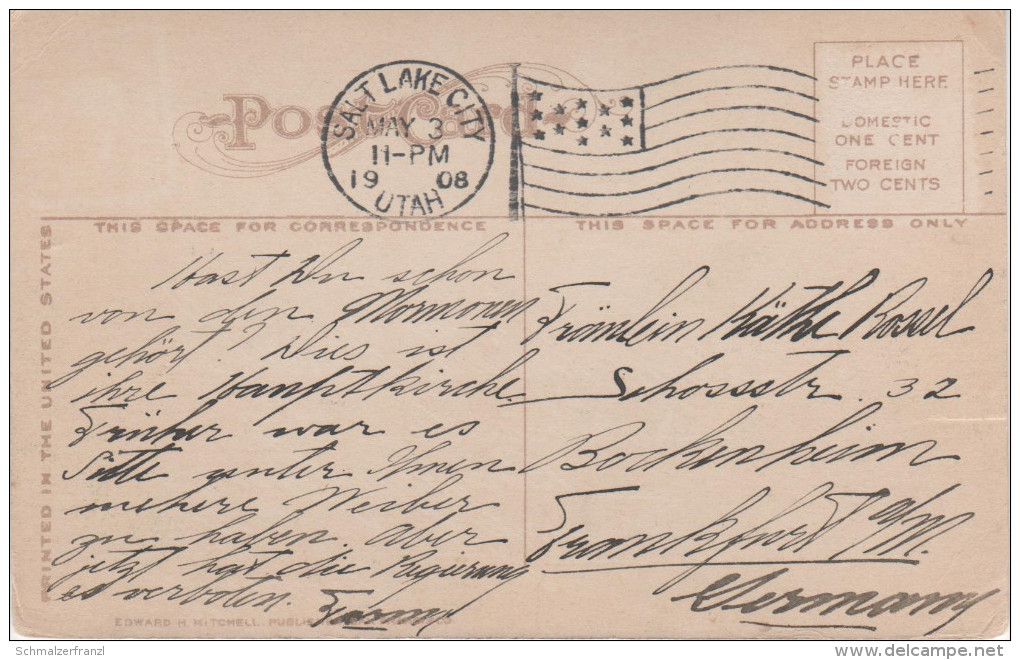 Post Card
SALT LAKE CITY
MAY 3
11-PM
19 08
UTAH
PLACE
STAMP HERE
DOMESTIC
ONE CENT
FOREIGN
TWO CENTS
THIS SPACE FOR CORRESPONDENCE
THIS SPACE FOR ADDRESS ONLY
PRINTED IN THE UNITED STATES
Hast Du schon
von den Mormonen
gehört? Dies ist
ihre Hauptkirche.
Früher war es
Sitte unter Ihnen
mehere Weiber
zu haben. aber
jetzt hat die Regierung
es verboten.
Fräulein Käthe Rossel
Schossstr. 32
Bockenheim
Frankfurt a/M.
Germany
EDWARD H. MITCHELL, PUBLISHER
Schmalzerfranzl
delcampe.net